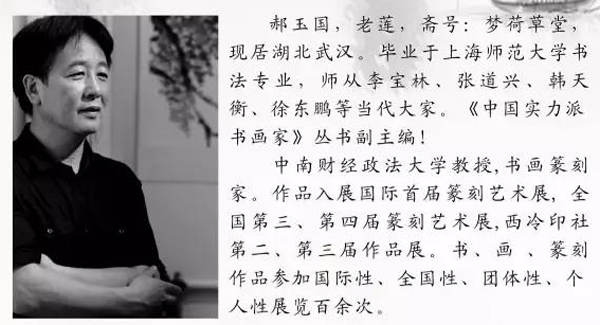 郝玉国，老莲，斋号：梦荷草堂，
现居湖北武汉。毕业于上海师范大学书
法专业，师从李宝林、张道兴、韩天
衡、徐东鹏等当代大家。《中国实力派
书画家》丛书副主编！
中南财经政法大学教授,书画篆刻
家。作品入展国际首届篆刻艺术展，全
国第三、第四届篆刻艺术展,西冷印社
第二、第三届作品展。书、画 、篆刻
作品参加国际性、全国性、团体性、个
人性展览百余次。